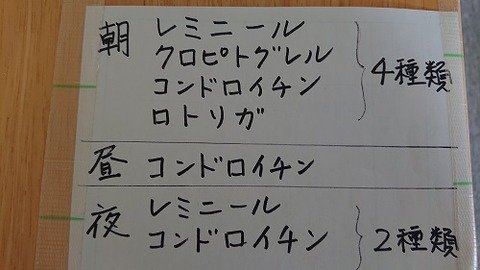 朝 レミニール
クロピトグレル
コンドロイチン
ロトリガ
4種類
昼 コンドロイチン
夜 レミニール
コンドロイチン
2種類